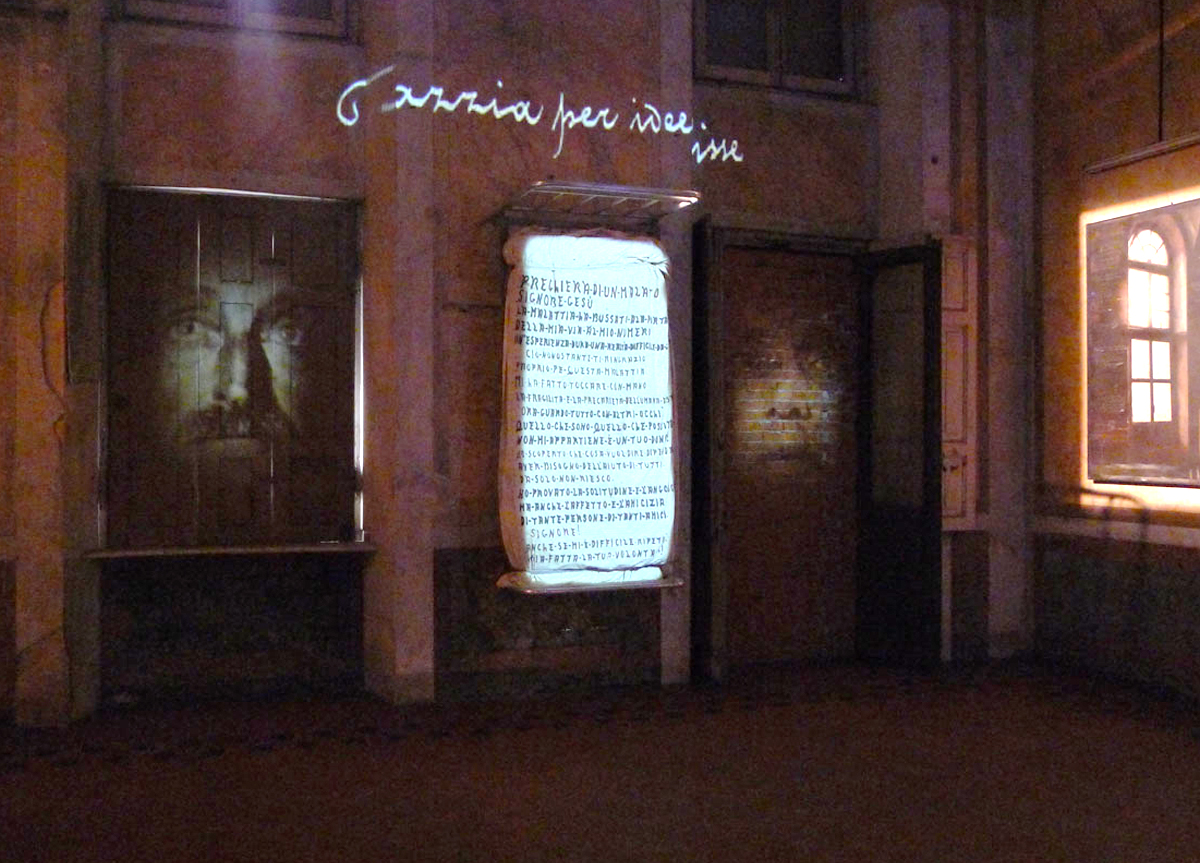 Pazzia per idee
isse
PREGHIERA·DI·UN·MALATO
SIGNORE·GESÙ
LA·MALATTIA·HA·BUSSATO·ALLA·PORTA
DELLA·MIA·VITA
UN'ESPERIENZA·DURA·UNA·REALTÀ·DIFFICILE·DA
CIÒ·NONOSTANTE·TI·RINGRAZIO
PROPRIO·PER·QUESTA·MALATTIA
MI·HA·FATTO·TOCCARE·CON·MANO
LA·FRAGILITÀ·E·LA·PRECARIETÀ·DELL'UMANA
ORA·GUARDO·TUTTO·CON·ALTRI·OCCHI
QUELLO·CHE·SONO·QUELLO·CHE·POSSIEDO
NON·MI·APPARTIENE·È·UN·TUO·DONO
HO·SCOPERTO·CHE·COSA·VUOL·DIRE·DIPENDERE
AVER·BISOGNO·DELL'AIUTO·DI·TUTTI
DA·SOLO·NON·RIESCO.
HO·PROVATO·LA·SOLITUDINE·E·L'ANGOSCIA
MA·ANCHE·L'AFFETTO·E·L'AMICIZIA
DI·TANTE·PERSONE·DI·TANTI·AMICI
SIGNORE!
ANCHE·SE·MI·È·DIFFICILE·RIPETO
SIA·FATTA·LA·TUA·VOLONTÀ!